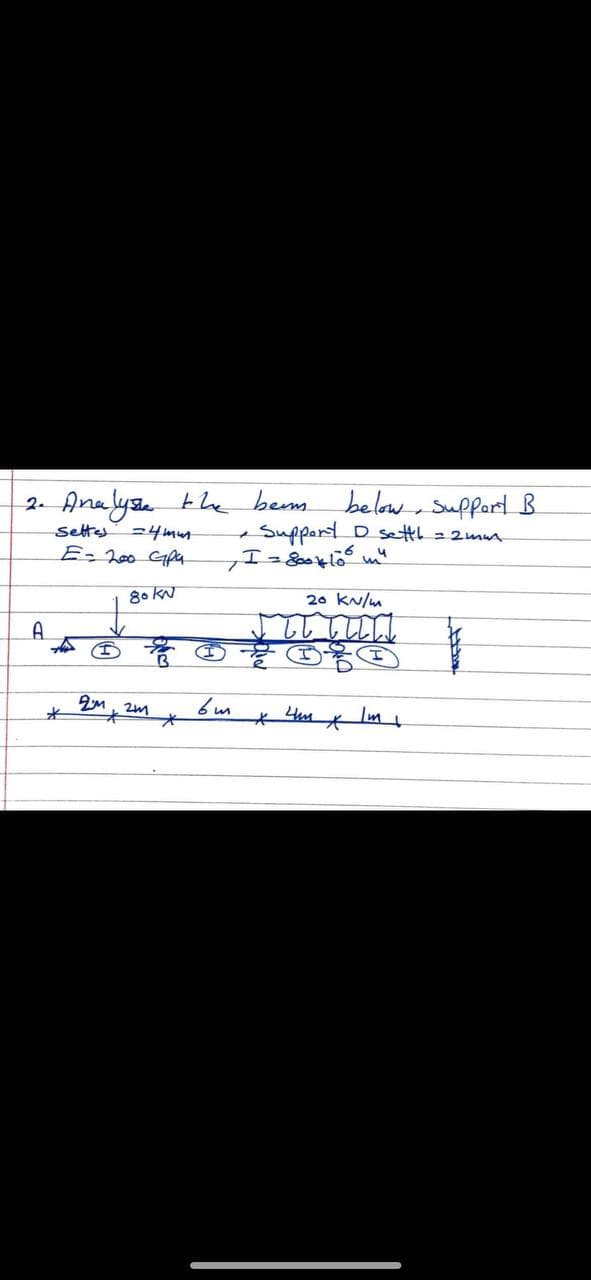 2. Analyse the beam below, support B
settes =4mm , Support D settl = 2mm
E= 200 GPa , I = 800x10⁻⁶ m⁴
80 KN
20 KN/m
A
I B I C I D I
2m 2m 6m 4m 1m